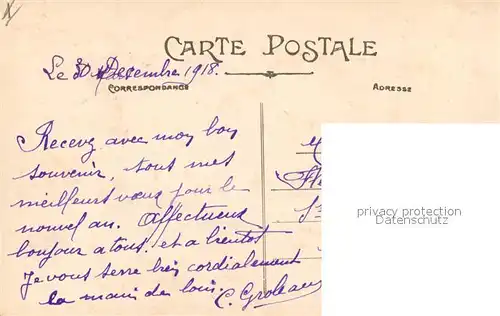 CARTE POSTALE
Le 30 Decembre 1918.
CORRESPONDANCE
ADRESSE
Recevez avec mon bon
souvenir, tous mes
meilleurs vœux pour le
nouvel an. Affectueux
bonjour a tous. et a bientot
Je vous serre bien cordialement
la main de loin.
C. Groleau
privacy protection
Datenschutz